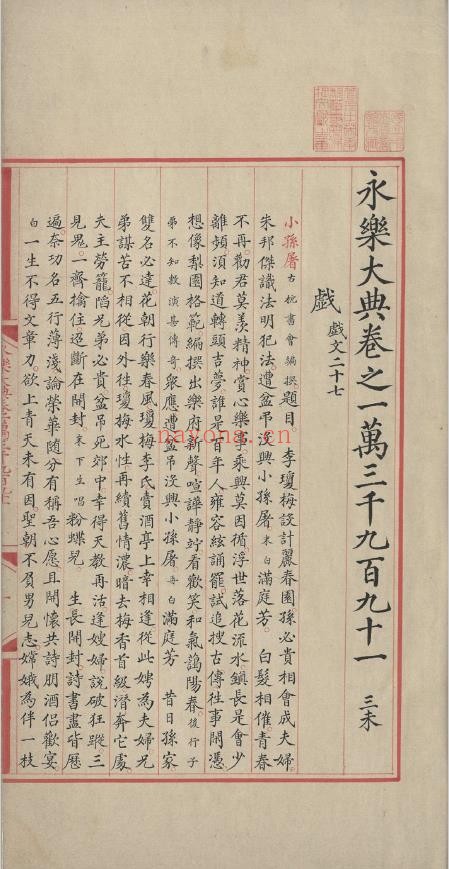 永樂大典卷之一萬三千九百九十一 三未
戲 戲文二十七
小孫屠 古杭書會編撰 題目 李瓊梅設計麗春園 孫必貴相會成夫婦
朱邦傑識法明犯法 遭盆吊沒興小孫屠 末白 滿庭芳 白髮相催 青春
不再 勸君莫羨精神 賞心樂事 乘興莫因循 浮世落花流水 鎮長是會少
離頻 須知道轉頭吉夢 誰是百年人 雍容絃誦罷 試追搜古傳 往事閑憑
想像梨園格範 編撰出樂府新聲 喧譁靜 竚看歡笑 和氣靄陽春 後行子
弟不知敷演甚傳奇 衆應 遭盆吊沒興小孫屠 再白 滿庭芳 昔日孫家
雙名必達 花朝行樂春風 瓊梅李氏 賣酒亭上幸相逢 從此娉為夫婦 兄
弟謀苦不相從 因外往瓊梅水性 再續舊情濃 暗去梅香首級 潛奔它處
夫主勞籠 陷兄弟必貴 盆吊死郊中 幸得天教再活 逢嫂婦說破狂蹤 三
見鬼 一齊擒住 迢斷在開封 末下 生唱 粉蝶兒 生長開封 詩書盡皆歷
遍 奈功名五行薄淺 論榮華隨分有 稱吾心愿 且開懷共詩朋酒侶歡宴
白 一生不得文章力 欲上青天未有因 聖朝不負男兒志 嫦娥為伴一枝
nayona.cn